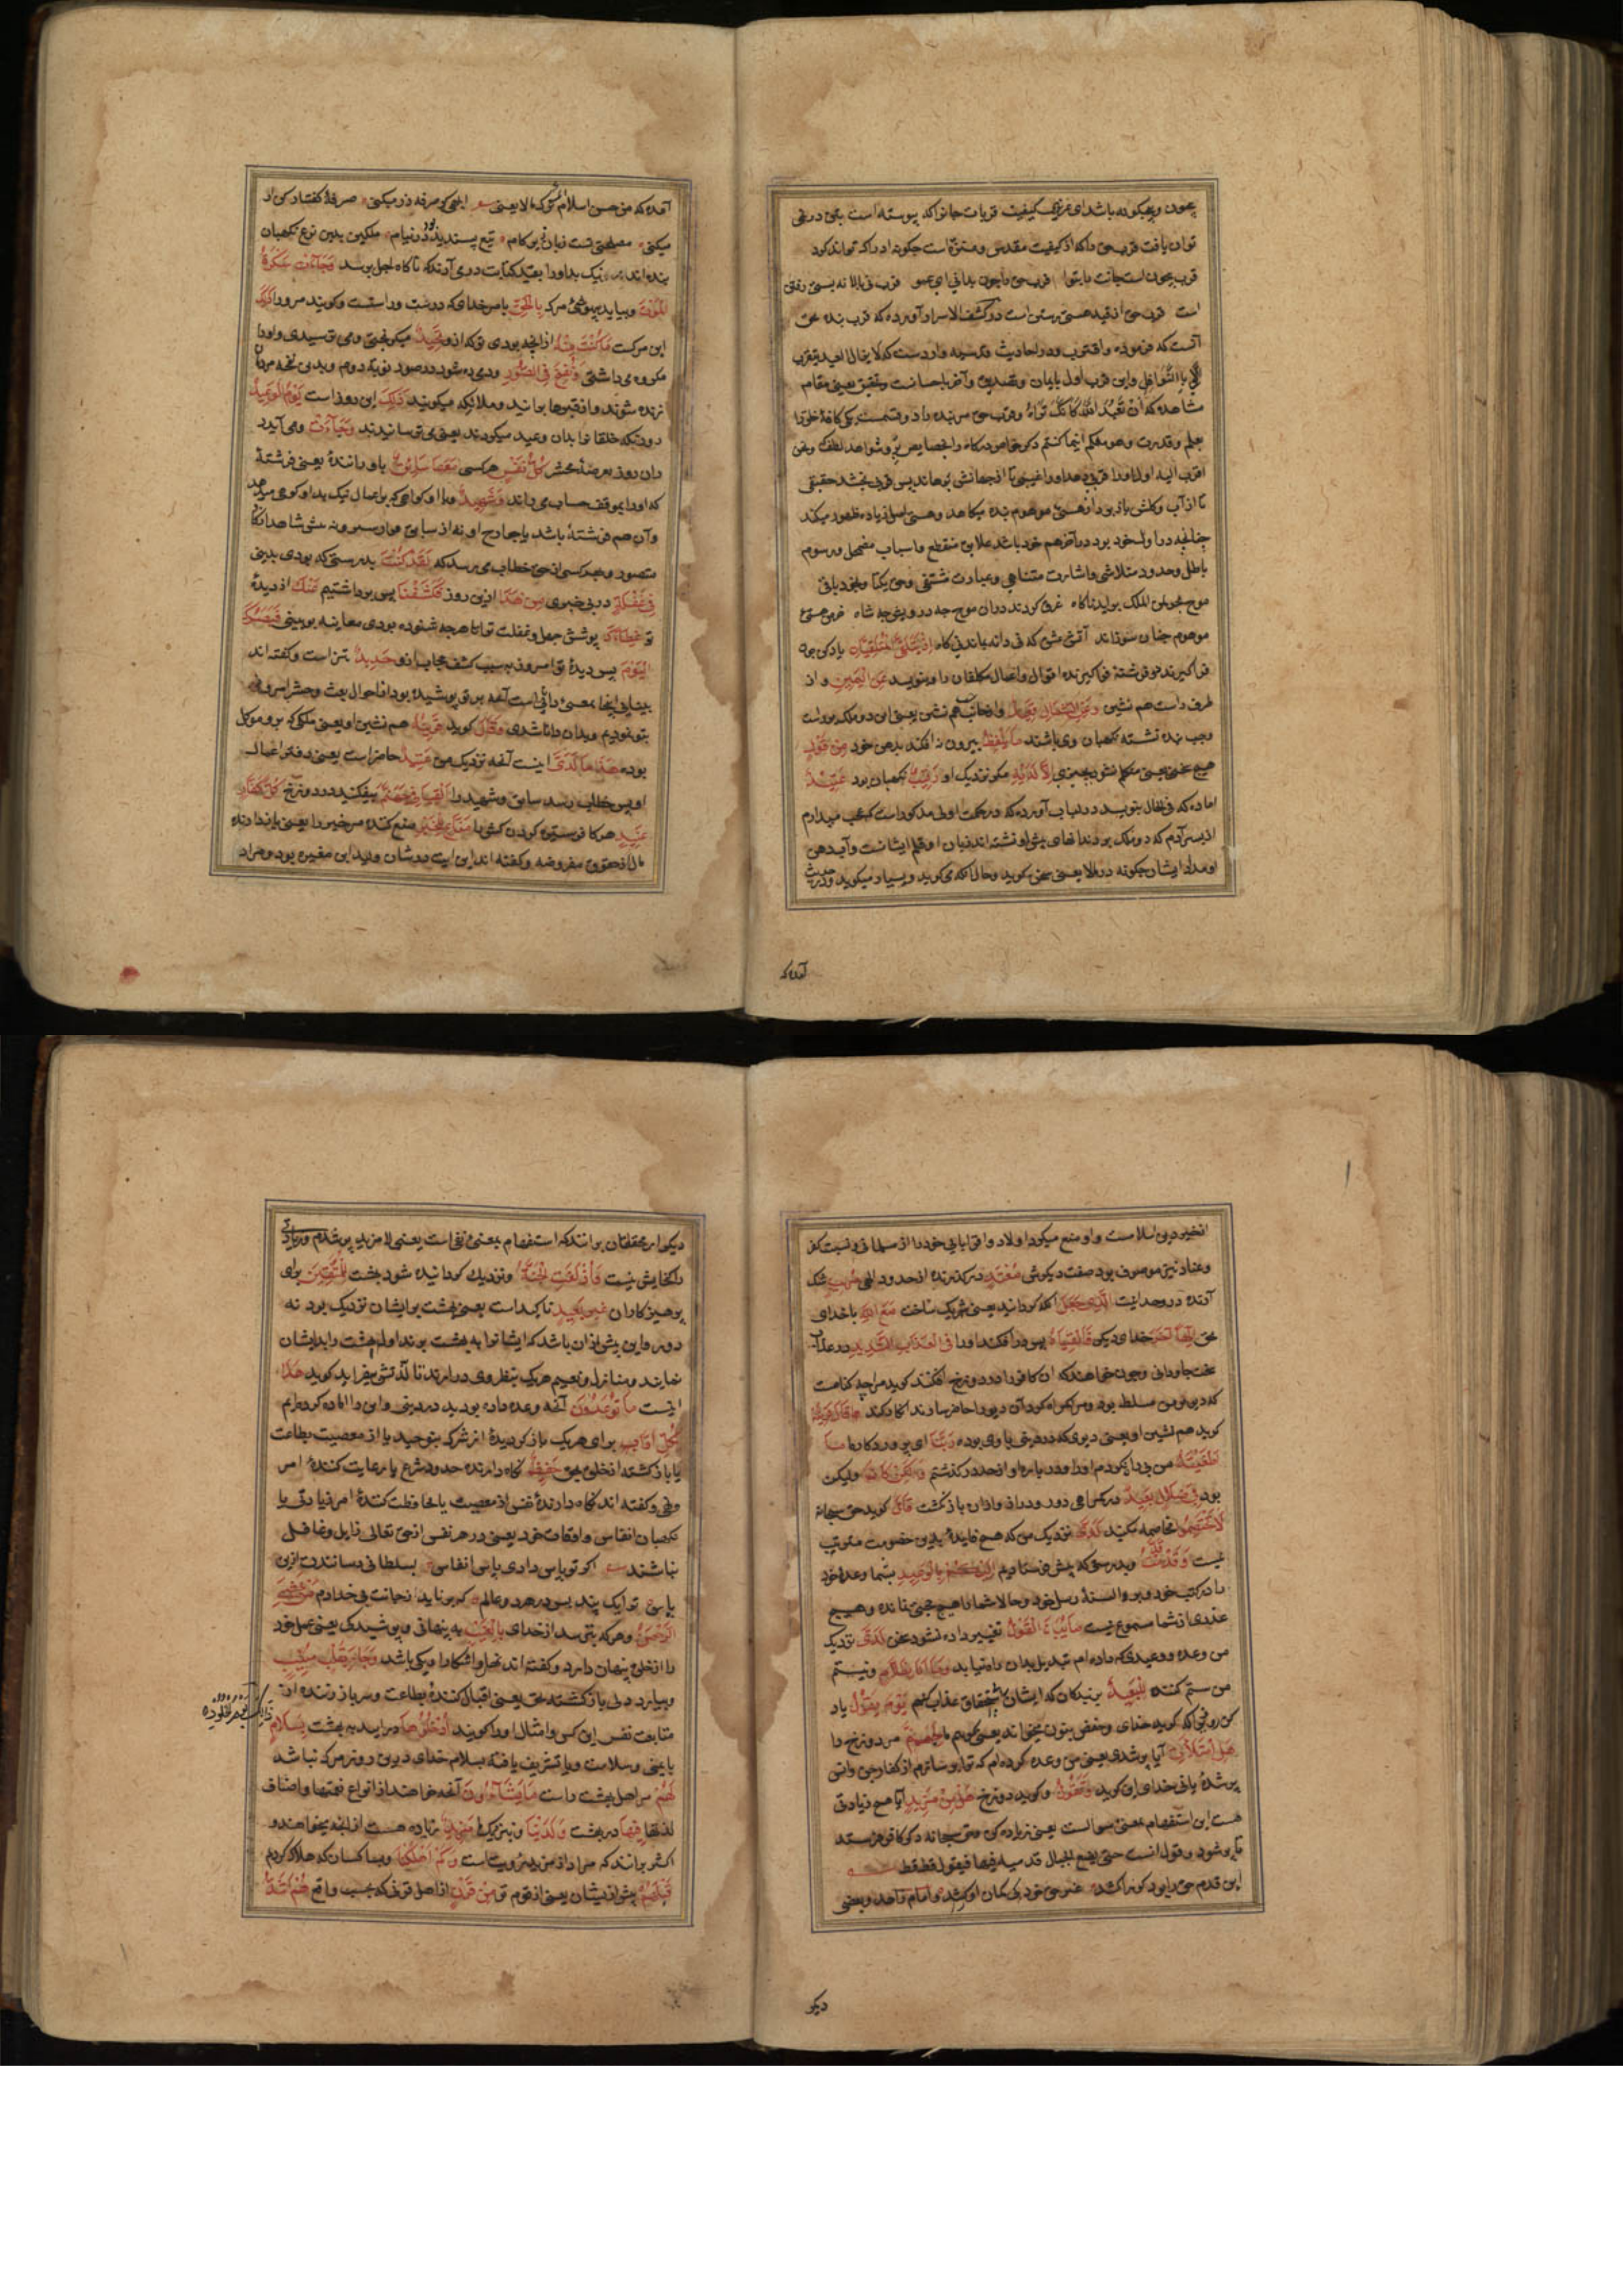 چون و چگونه باشد ای عزیز کیفیت قربات جانرا که پیوسته است بتن در نمی
توان یافت قرب حق را که از کیفیت مقدس و منزه است چگونه ادراک تواند کرد
قرب بیچون است جانت را بتو قرب حق را چون بدانی ای عمو قرب نی بالا نه پستی رفتن
است قرب حق از قید هستی رستن است در کشف الاسرار آورده که قرب بنده بحق
آنست که فرموده واقترب و در احادیث قدسیه وارد است که لا یزال العبد یتقرب
الی بالنوافل و این قرب اول بایمان و تصدیق و آخر باحسانست و تحقیق یعنی مقام
مشاهده که ان تعبد الله کانک تراه و قرب حق مر بنده را دو قسمت یکی کافه خلق را
بعلم و قدرت و هو معکم اینما کنتم دیگر خواص درگاه را بخصایص بر و شواهد لطف و نحن
اقرب الیه اول او را قربی دهد اورا غیبی تا از جهانش برهاند پس قربی بخشد حقیقی
تا از آب و گلش باز برد از هستی موهوم بنده میکاهد و هستی اصل زیاده ظهور میکند
چنانچه در اول خود بود در آخر هم خود باشد علایق منقطع و اسباب مضمحل و رسوم
باطل و حدود متلاشی و اشارت متناهی و عبارت منتفی و حق یکتا و بخود باقی
موج بحر لمن الملک برآید ناگاه غرق گردند در آن موج چه درویش و چه شاه خرمن هستی
موهوم چنان سوزاند آتش عشق که نی دانه بماند نی کاه اِذْ یَتَلَقَّی الْمُتَلَقِّیَانِ یاد کن چون
فرا گیرند دو فرشته فرا گیرنده اقوال و اعمال مکلفان را و بنویسد عَنِ الْیَمِینِ و از
طرف راست هم نشین وَعَنِ الشِّمَالِ قَعِیدٌ و از جانب چپ هم نشین یعنی این دو ملک بر راست
و چپ بنده نشسته نگهبان وی باشند مَا یَلْفِظُ بیرون نه افکند بدهن خود مِنْ قَوْلٍ
هیچ سخنی یعنی متکلم نشود بچیزی اِلَّا لَدَیْهِ مگر نزدیک او رَقِیبٌ نگهبان بود عَتِیدٌ
اماده که فی الحال بنویسد در لباب آورده که در حکمت اولی مذکور است که عجب میدارم
از پسر آدم که دو ملک بر دندانهای پیش او نشسته اند زبان او قلم ایشانست و آب دهن
او مداد ایشان چگونه در ما لا یعنی سخن بگوید و حال آنکه می گوید و بسیار میگوید و در حدیث
آمده که
آمده که من حسن اسلام المرء ترک ما لا یعنی ابلهی کو صرفه زر میکنی صرفهٔ گفتار کن ار
میکنی مصلحتی تست زبان زیر کام تیغ پسندیده بود در نیام ملکین بدین نوع نگهبان
بنده اند نیک بد او را بقید کتابت در می آرند که تا گاه اجل برسد وَجَآءَتْ سَکْرَةُ
الْمَوْتِ و بیاید بیهوشی مرگ بِالْحَقِّ بامر خدای که درست و راستست و گویند مرورا ذٰلِکَ
این مرگست مَا کُنْتَ مِنْهُ از آنچه بودی تو که ازو تَحِیدُ میگریختی و می ترسیدی و او را
مکروه می داشتی وَنُفِخَ فِی الصُّورِ و دمیده شود در صور نوبه دوم و بدین نفخه مردگان
زنده شوند و از قبرها برانید و ملائکه میگویند ذٰلِکَ این روز است یَوْمُ الْوَعِیدِ
روزیکه خلقانرا بدان وعید میکردند یعنی می ترسانیدند وَجَآءَتْ و می آید در
دان روز بعرصه محشر کُلُّ نَفْسٍ هر کسی مَعَهَا سَائِقٌ باو رانندهٔ یعنی فرشتهٔ
که او را بموقف حساب می راند وَشَهِیدٌ و با او گواهی که بر اعمال نیک بد او گواهی میدهد
و آن هم فرشتهٔ باشد یا جوارح او نه از سایق فرار میسر و نه عین شاهد انکار
متصور و هر کسی از حق خطاب می رسد که لَقَدْ کُنْتَ بدرستی که بودی بدینی
فِی غَفْلَةٍ در بی خبری مِنْ هٰذَا ازین روز فَکَشَفْنَا پس برداشتیم عَنْکَ از دیدهٔ
تو غِطَآءَکَ پوشش جهل و غفلت تو تا هرچه شنوده بودی معاینه بر بینی فَبَصَرُکَ
الْیَوْمَ پس دیدهٔ تو امروز به سبب کشف حجاب ازو حَدِیدٌ تیز است و گفته اند
بینایی اینجا بمعنی دانایی است آنچه بر تو پوشیده بود از احوال بعث و حشر امروز
بتو نمودیم و بدان دانا شدی وَقَالَ گوید قَرِینُهُ هم نشین او یعنی ملکی که برو موکل
بوده هٰذَا مَا لَدَیَّ اینست آنچه نزدیک من عَتِیدٌ حاضر است یعنی دفتر اعمال
او پس خطاب رسد سایق و شهید را اَلْقِیَا فِی جَهَنَّمَ بیفکنید در دوزخ کُلَّ کَفَّارٍ
عَنِیدٍ هر کافر ستیزه کردن کش را مَنَّاعٍ لِلْخَیْرِ منع کننده مر خیر را یعنی باز دارنده
مال از حقوق مفروضه و گفته اند این ایت در شان ولید ابن مغیره بود و مراد
از خیر دین اسلامست و او منع میکرد اولاد و اقربای خود را از مسلمانی و نسبت کفر
و عناد نیز موصوف بود صفت دیگرش مُعْتَدٍ در گذرنده از حدود الهی مُرِیبٍ شک
آرنده در وحدانیت الَّذِی جَعَلَ انکه گردانید یعنی شریک ساخت مَعَ اللهِ با خدای
بحق اِلٰهًا آخَرَ خدای دیگر فَاَلْقِیَاهُ پس در افکند اورا فِی الْعَذَابِ الشَّدِیدِ در عذاب
سخت جاودانی و چون خواهند که ان کافر را در دوزخ افکنند گوید مرا چه گناهست
که دیو بر من مسلط بود و مرا گمراه کرد آن دیو را حاضر سازند انکار کند قَالَ قَرِینُهُ
گوید هم نشین او یعنی دیوی که در دنیا با وی بوده رَبَّنَا ای پروردگار ما مَا
اَطْغَیْتُهُ من بی راه نکردم او را و در باره او از حد در نگذشتم وَلٰکِنْ کَانَ و لیکن
بود فِی ضَلَالٍ بَعِیدٍ در گمراهی دور و دراز و ازان باز نگشت قَالَ گوید حق سبحانه
لَا تَخْتَصِمُوا مخاصمه مکنید لَدَیَّ نزدیک من که هیچ فایدهٔ بدین خصومت مترتب
نیست وَقَدْ قَدَّمْتُ و بدرستی که پیش فرستادم اِلَیْکُمْ بِالْوَعِیدِ بشما وعدهٔ خود
را در کتب خود و بر السنهٔ رسل خود و حالا شما را هیچ حجتی نمانده و هیچ
عذری از شما مسموع نیست مَا یُبَدَّلُ الْقَوْلُ تغییر داده نشود سخن لَدَیَّ نزدیک
من وعده و وعیدی که داده ام تبدیل بدان راه نیابد وَمَا اَنَا بِظَلَّامٍ و نیستم
من ستم کننده لِلْعَبِیدِ بر بندگان که ایشان را بی استحقاق عذاب کنم یَوْمَ یَقُولُ یاد
کن روزی که گوید خدای و حفص بنون میخواند یعنی گویم ما لِجَهَنَّمَ مر دوزخ را
هَلِ امْتَلَأْتِ آیا پر شدی یعنی من وعده کرده ام که ترا پر سازم از کفار جن و انس
پر شدهٔ یا نی خدای این گوید وَتَقُولُ و گوید دوزخ هَلْ مِنْ مَزِیدٍ آیا هیچ زیادتی
هست این استفهام بمعنی سوالست یعنی زیاده کن حق سبحانه دیگر کافر فرستد
تا پر شود و قول انست حتی یضع الجبار قدمه فیها فیقول قط قط
این قدم حق را بود کو را کشد غیر حق خود کی کمان او کشد و امام زاهد و بعضی
دیگر
دیگر از محققان برانند که استفهام بمعنی نفی است یعنی لا مزید پر شدم و زیادتی
را گنجایش نیست وَاُزْلِفَتِ الْجَنَّةُ و نزدیک گردانیده شود بهشت لِلْمُتَّقِینَ برای
پرهیزکاران غَیْرَ بَعِیدٍ تاکید است یعنی بهشت بر ایشان نزدیک بود نه
دور و این پیش ازان باشد که ایشانرا به بهشت برند اول بهشت را بدیشان
نمایند و منازل و نعیم هریک بنظر وی در آرند تا لذتش بیفزاید گوید هٰذَا
اینست مَا تُوعَدُونَ آنچه وعده داده بودید در دنیا و این را اماده کرده ایم
لِکُلِّ اَوَّابٍ برای هریک باز گردیدهٔ از شرک بتوحید یا از معصیت بطاعت
یا باز گشته از خلق بحق حَفِیظٍ نگاه دارنده حدود شرع یا رعایت کنندهٔ امر
و نهی و گفته اند نگاه دارندهٔ نفس از معصیت یا محافظت کنندهٔ امر ربانی یا
نگهبان انفاس و اوقات خود یعنی در هر نفس از حق تعالی ذاهل و غافل
نباشند اگر تو پاس داری پاس انفاس بسلطانی رسانندت ازین
پاس ترا یک پند بس در هر دو عالم که برناید ز جانت بی خدا دم مَنْ خَشِیَ
الرَّحْمٰنَ و هر که بترسد از خدای بِالْغَیْبِ به پنهانی و پوشیدگی یعنی عمل خود
را از خلق پنهان دارد و گفته اند نهان و آشکارا یکی باشد وَجَآءَ بِقَلْبٍ مُنِیبٍ
و بیارد دلی باز گشته بحق یعنی اقبال کنندهٔ بطاعت و سرباز زننده از
متابعت نفس این کس و امثال او را گویند اُدْخُلُوهَا در اید به بهشت بِسَلَامٍ
ذٰلِکَ یَوْمُ الْخُلُودِ
بایمنی و سلامت و یا تشریف یافتهٔ بسلام خدای درین روز مرگ نباشد
لَهُمْ مر اهل بهشت راست مَا یَشَآءُونَ آنچه خواهند از انواع نعمتها و اصناف
لذتها فِیهَا در بهشت وَلَدَیْنَا و نزدیک ما مَزِیدٌ زیاده هست از آنچه بخواهند و
اکثر برانند که مراد از مزید رویتست وَکَمْ اَهْلَکْنَا و بسا کسان که هلاک کردم
قَبْلَهُمْ پیش از ایشان یعنی از قوم تو مِنْ قَرْنٍ از اهل قرنی که بحسب واقع هُمْ اَشَدُّ